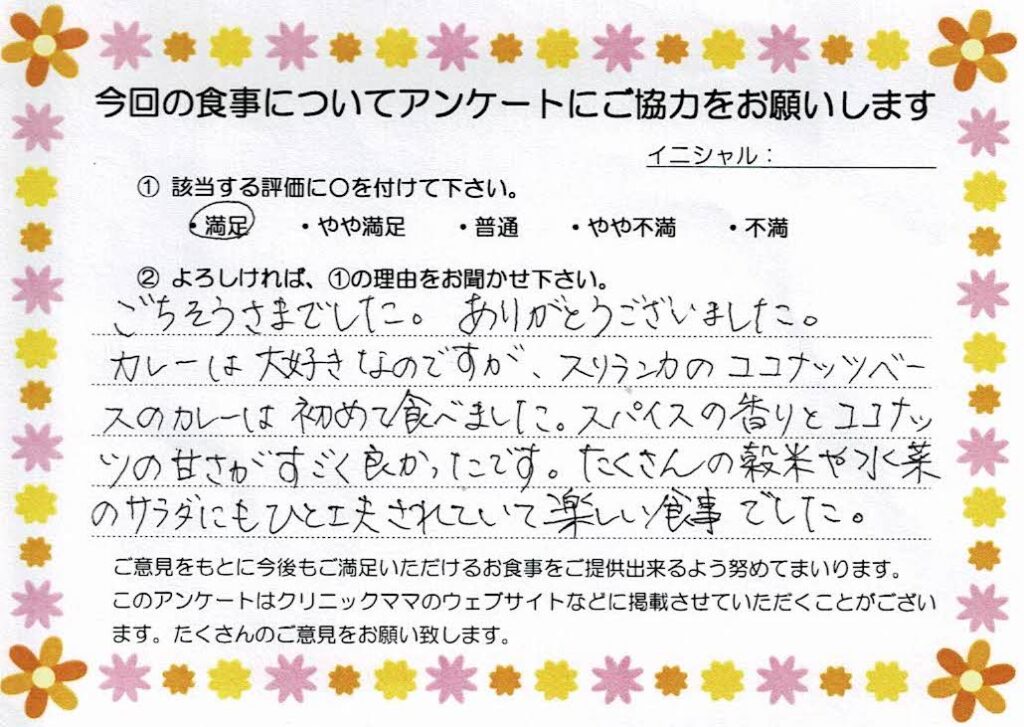 今回の食事についてアンケートにご協力をお願いします
イニシャル：
① 該当する評価に〇を付けて下さい。
・満足 ・やや満足 ・普通 ・やや不満 ・不満
② よろしければ、①の理由をお聞かせ下さい。
ごちそうさまでした。ありがとうございました。
カレーは大好きなのですが、スリランカのココナッツベー
スのカレーは初めて食べました。スパイスの香りとココナッ
ツの甘さがすごく良かったです。たくさんの穀米や水菜
のサラダにもひと工夫されていて楽しい食事でした。
ご意見をもとに今後もご満足いただけるお食事をご提供出来るよう努めてまいります。
このアンケートはクリニックママのウェブサイトなどに掲載させていただくことがござい
ます。たくさんのご意見をお願い致します。